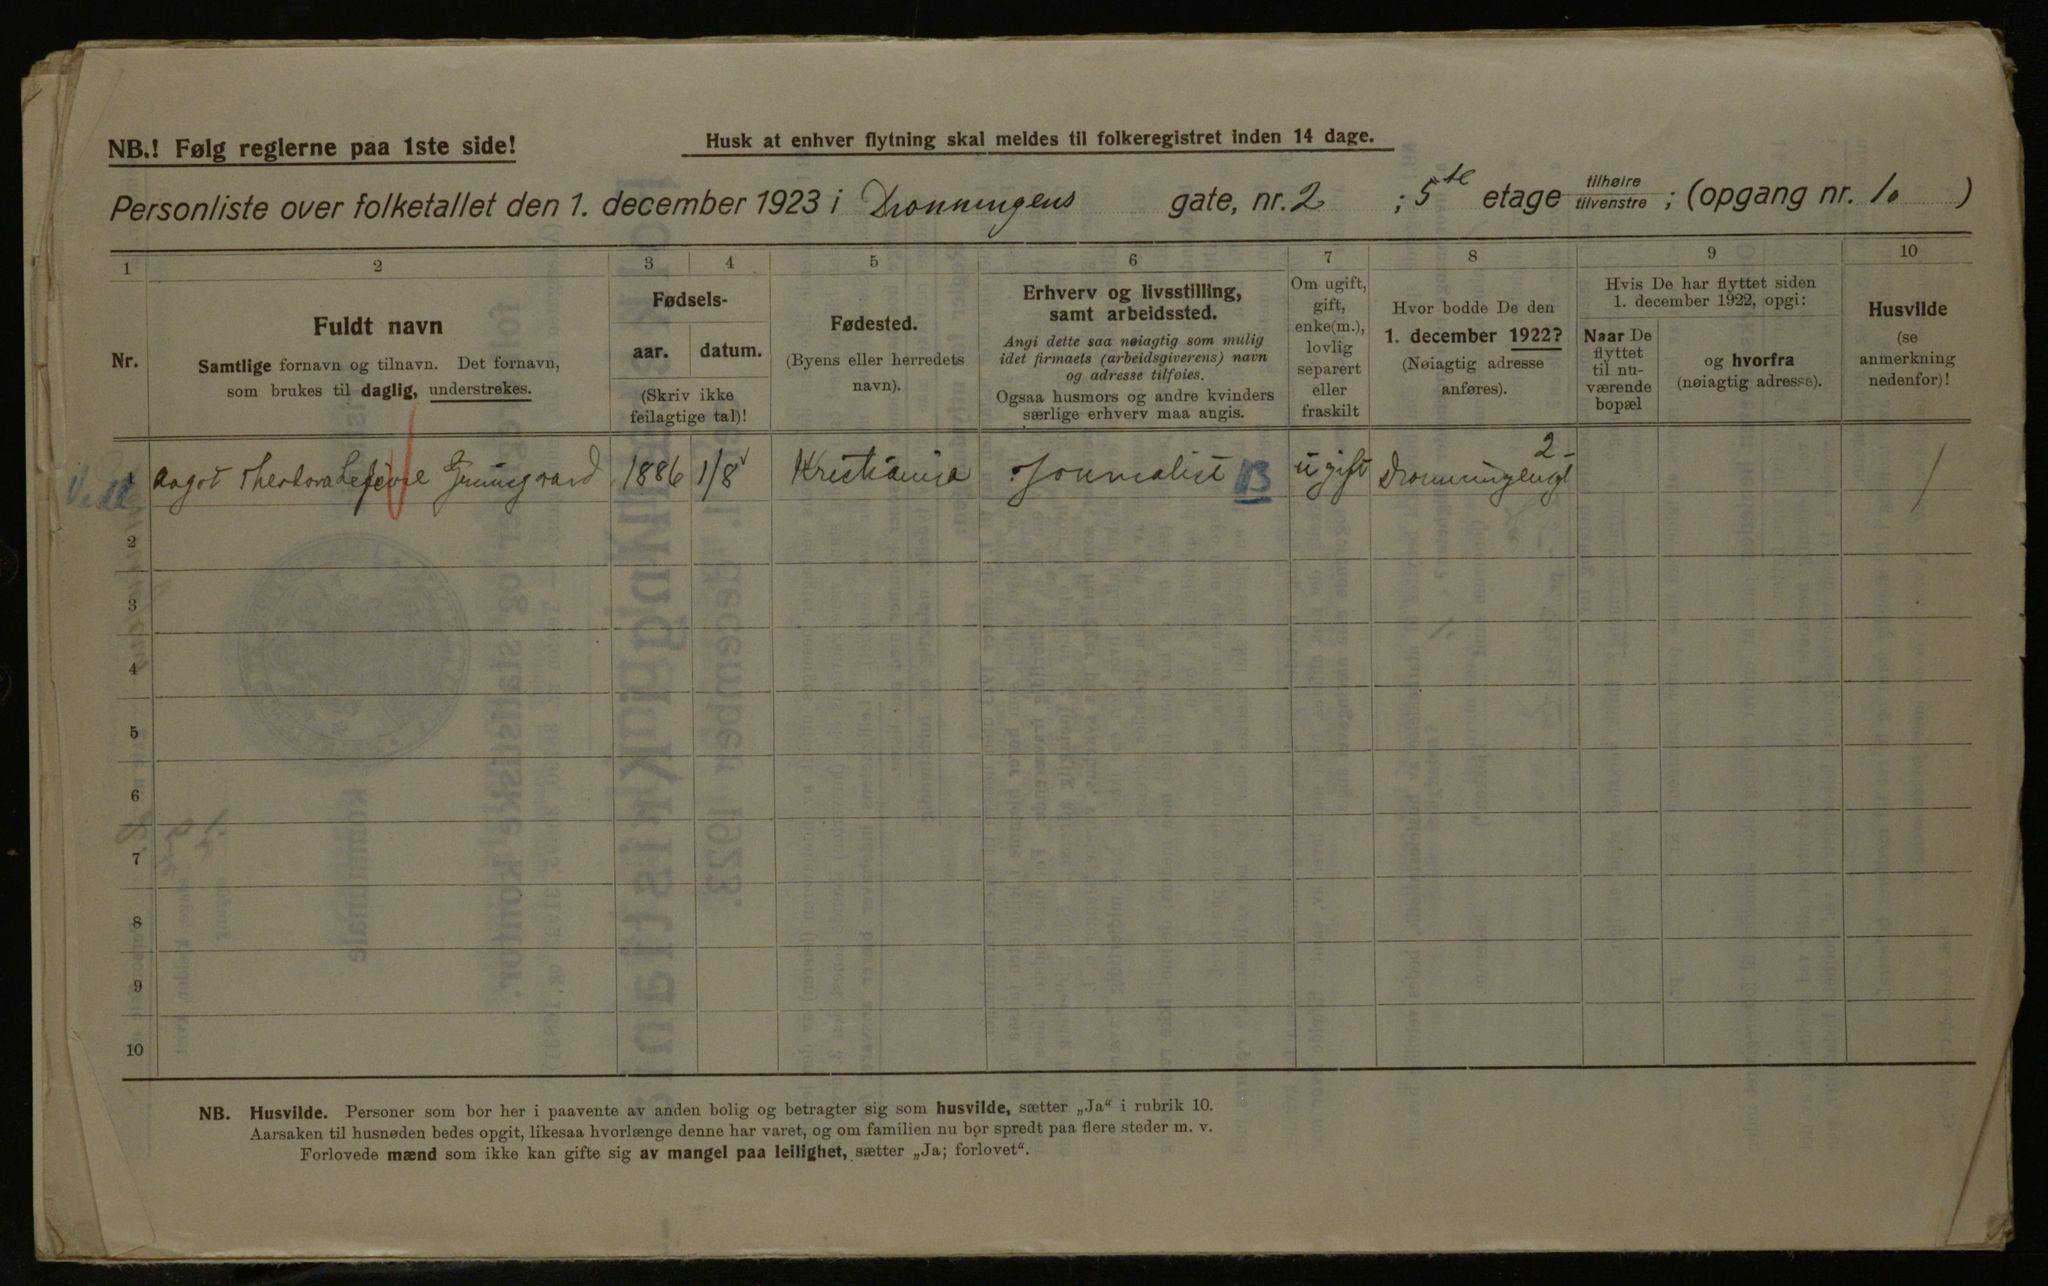 NB.! Følg reglerne paa 1ste side!
Husk at enhver flytning skal meldes til folkeregistret inden 14 dage.
Personliste over folketallet den 1. december 1923 i Dronningens gate, nr. 2 ; 5te etage tilhøire tilvenstre ; (opgang nr. 10 )
1 2 3 4 5 6 7 8 9 10
Nr.
Fuldt navn
Samtlige fornavn og tilnavn. Det fornavn,
som brukes til daglig, understrekes.
Fødsels-
aar. datum.
(Skriv ikke
feilagtige tal)!
Fødested.
(Byens eller herredets
navn).
Erhverv og livsstilling,
samt arbeidssted.
Angi dette saa nøiagtig som mulig
idet firmaets (arbeidsgiverens) navn
og adresse tilføies.
Ogsaa husmors og andre kvinders
særlige erhverv maa angis.
Om ugift,
gift,
enke(m.),
lovlig
separert
eller
fraskilt
Hvor bodde De den
1. december 1922?
(Nøiagtig adresse
anføres).
Hvis De har flyttet siden
1. december 1922, opgi:
Naar De
flyttet
til nu-
værende
bopæl
og hvorfra
(nøiagtig adresse).
Husvilde
(se
anmerkning
nedenfor)!
1 Aagot Theodora Lefèvre 1886 1/8 Kristiania Journalist B ugift Dronningensgt 2 -
2
3
4
5
6
7
8
9
10
NB. Husvilde. Personer som bor her i paavente av anden bolig og betragter sig som husvilde, sætter „Ja“ i rubrik 10.
Aarsaken til husnøden bedes opgit, likesaa hvorlænge denne har varet, og om familien nu bor spredt paa flere steder m. v.
Forlovede mænd som ikke kan gifte sig av mangel paa leilighet, sætter „Ja; forlovet“.